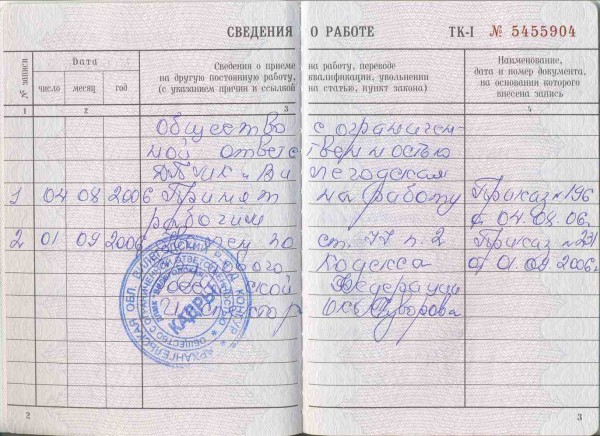 СВЕДЕНИЯ О РАБОТЕ ТК-I № 5455904
№ записи
Дата
число месяц год
Сведения о приеме на работу, переводе
на другую постоянную работу, квалификации, увольнении
(с указанием причин и ссылкой на статью, пункт закона)
Наименование,
дата и номер документа,
на основании которого
внесена запись
1 2 3 4
Общество с ограничен-
ной ответс твенностью
1 04 08 2006 Принят на работу Приказ №196
рабочим с 04.08.06.
2 01 09 2006 по ст. 77 п. 2 Приказ №
кодекса от 01.09.2006г.
Федерации
Инспектор ОК Суворова
КАДРЫ
2
3